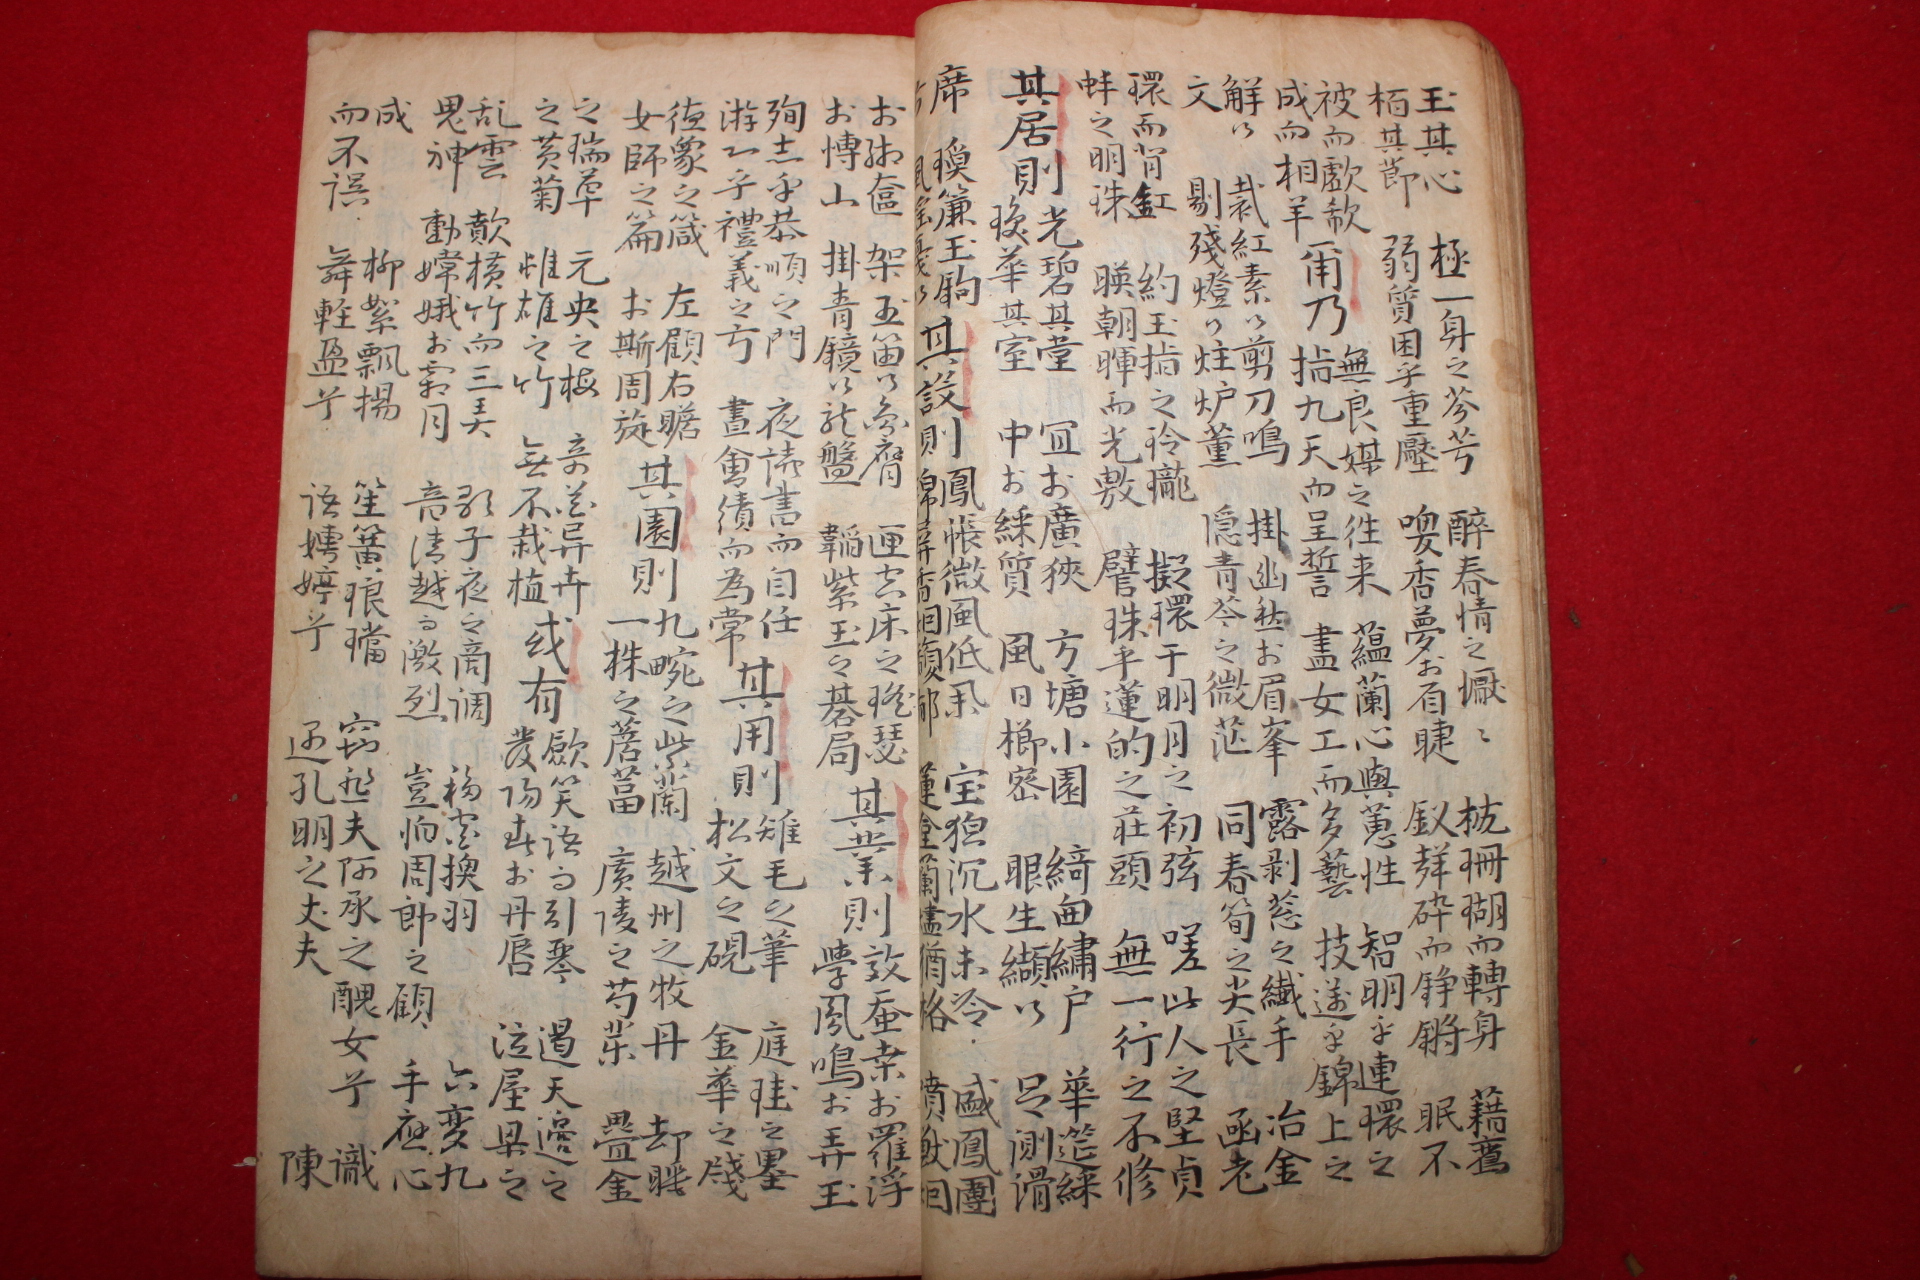 玉其心 極一身之芬芳 醉春情之懨〻 枕珊瑚而轉身 藉舊
栢其節 弱質困乎重壓 喚香夢於眉睫 釵碎而錚鏘 眠不
被而歔欷
成而相羊
爾乃
無良媒之往来 蘊蘭心與蕙性 智明乎連環之
揣九天而呈誓 盡女工而多藝 技遂乎錦上之
解以 裁紅素以剪刀鳴 掛幽愁於眉峯 露剥葱之纖手 冶金
文 剔殘燈以炷炉薰 隠青苓之微茫 同春筍之尖長 函老
環而背缸 約玉指之玲瓏 擬環于明月之初弦 嗟此人之堅貞
蚌之明珠 暎朝暉而光敷 譬珠乎蓮的之莊頭 無一行之不修
其居則
光碧其堂 冝於廣狹 方塘小園 綺繡户 華筵綵
琼華其室 中於綵質 風日櫛密 眼生纈以 足測滑
席 簾玉鉤
其設則
鳳帳微風低 宝猊沉水未冷 盛鳳團
於奩 架玉笛以膺 匣古床之瑤瑟
於博山 掛青鏡以龍盤 韜紫玉之碁局
其業則
效蚕桒於羅浮
學鳳鳴於弄玉
殉志乎恭順之門 夜读書而自任
游心乎禮義之方 晝會績而為常
其用則
雉毛之筆 庭珪之墨
松文之硯 金華之牋
德象之箴 左顧右瞻
女師之篇 於斯周旋
其園則
九畹之紫蘭 越州之牧丹 却睡
一株之菖 廣陵之芍药 疊金
之瑞草 元央之梅 奇花异卉
之黄菊 雌雄之竹 無不栽植
或有
歛笑語而引琴 遏天邉之
發陽春於丹唇 泣屋梁之
乱雲 歕橫竹而三美 歌子夜之商调 移宫換羽 六变九
鬼神 動嫦娥於霜月 音清越而激烈 豈怕周郎之顧 手应心
成 柳絮飄揚 笙簧琅璫 窃愁夫阿承之醜女兮 識
而不误 舞軽盈兮 语娉婷兮 还孔明之丈夫 陳